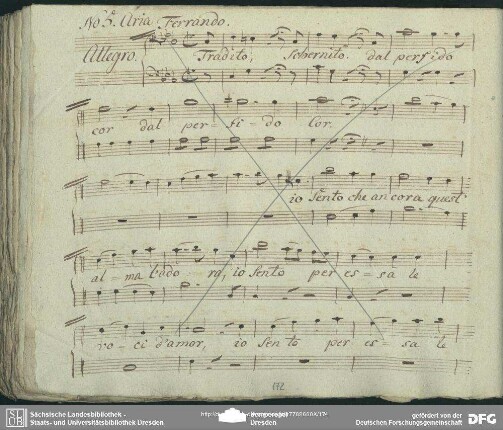 No 3. Aria Ferrando.
Allegro. Tradito, schernito dal perfido
cor dal per- fi- do Cor.
io sento che ancora quest'
al- ma l'ado ra, io sento per es- sa le
vo- ci d'amor, io sen to per es- sa le
172
Sächsische Landesbibliothek -
Staats- und Universitätsbibliothek Dresden
Dresden
gefördert von der
Deutschen Forschungsgemeinschaft
DFG